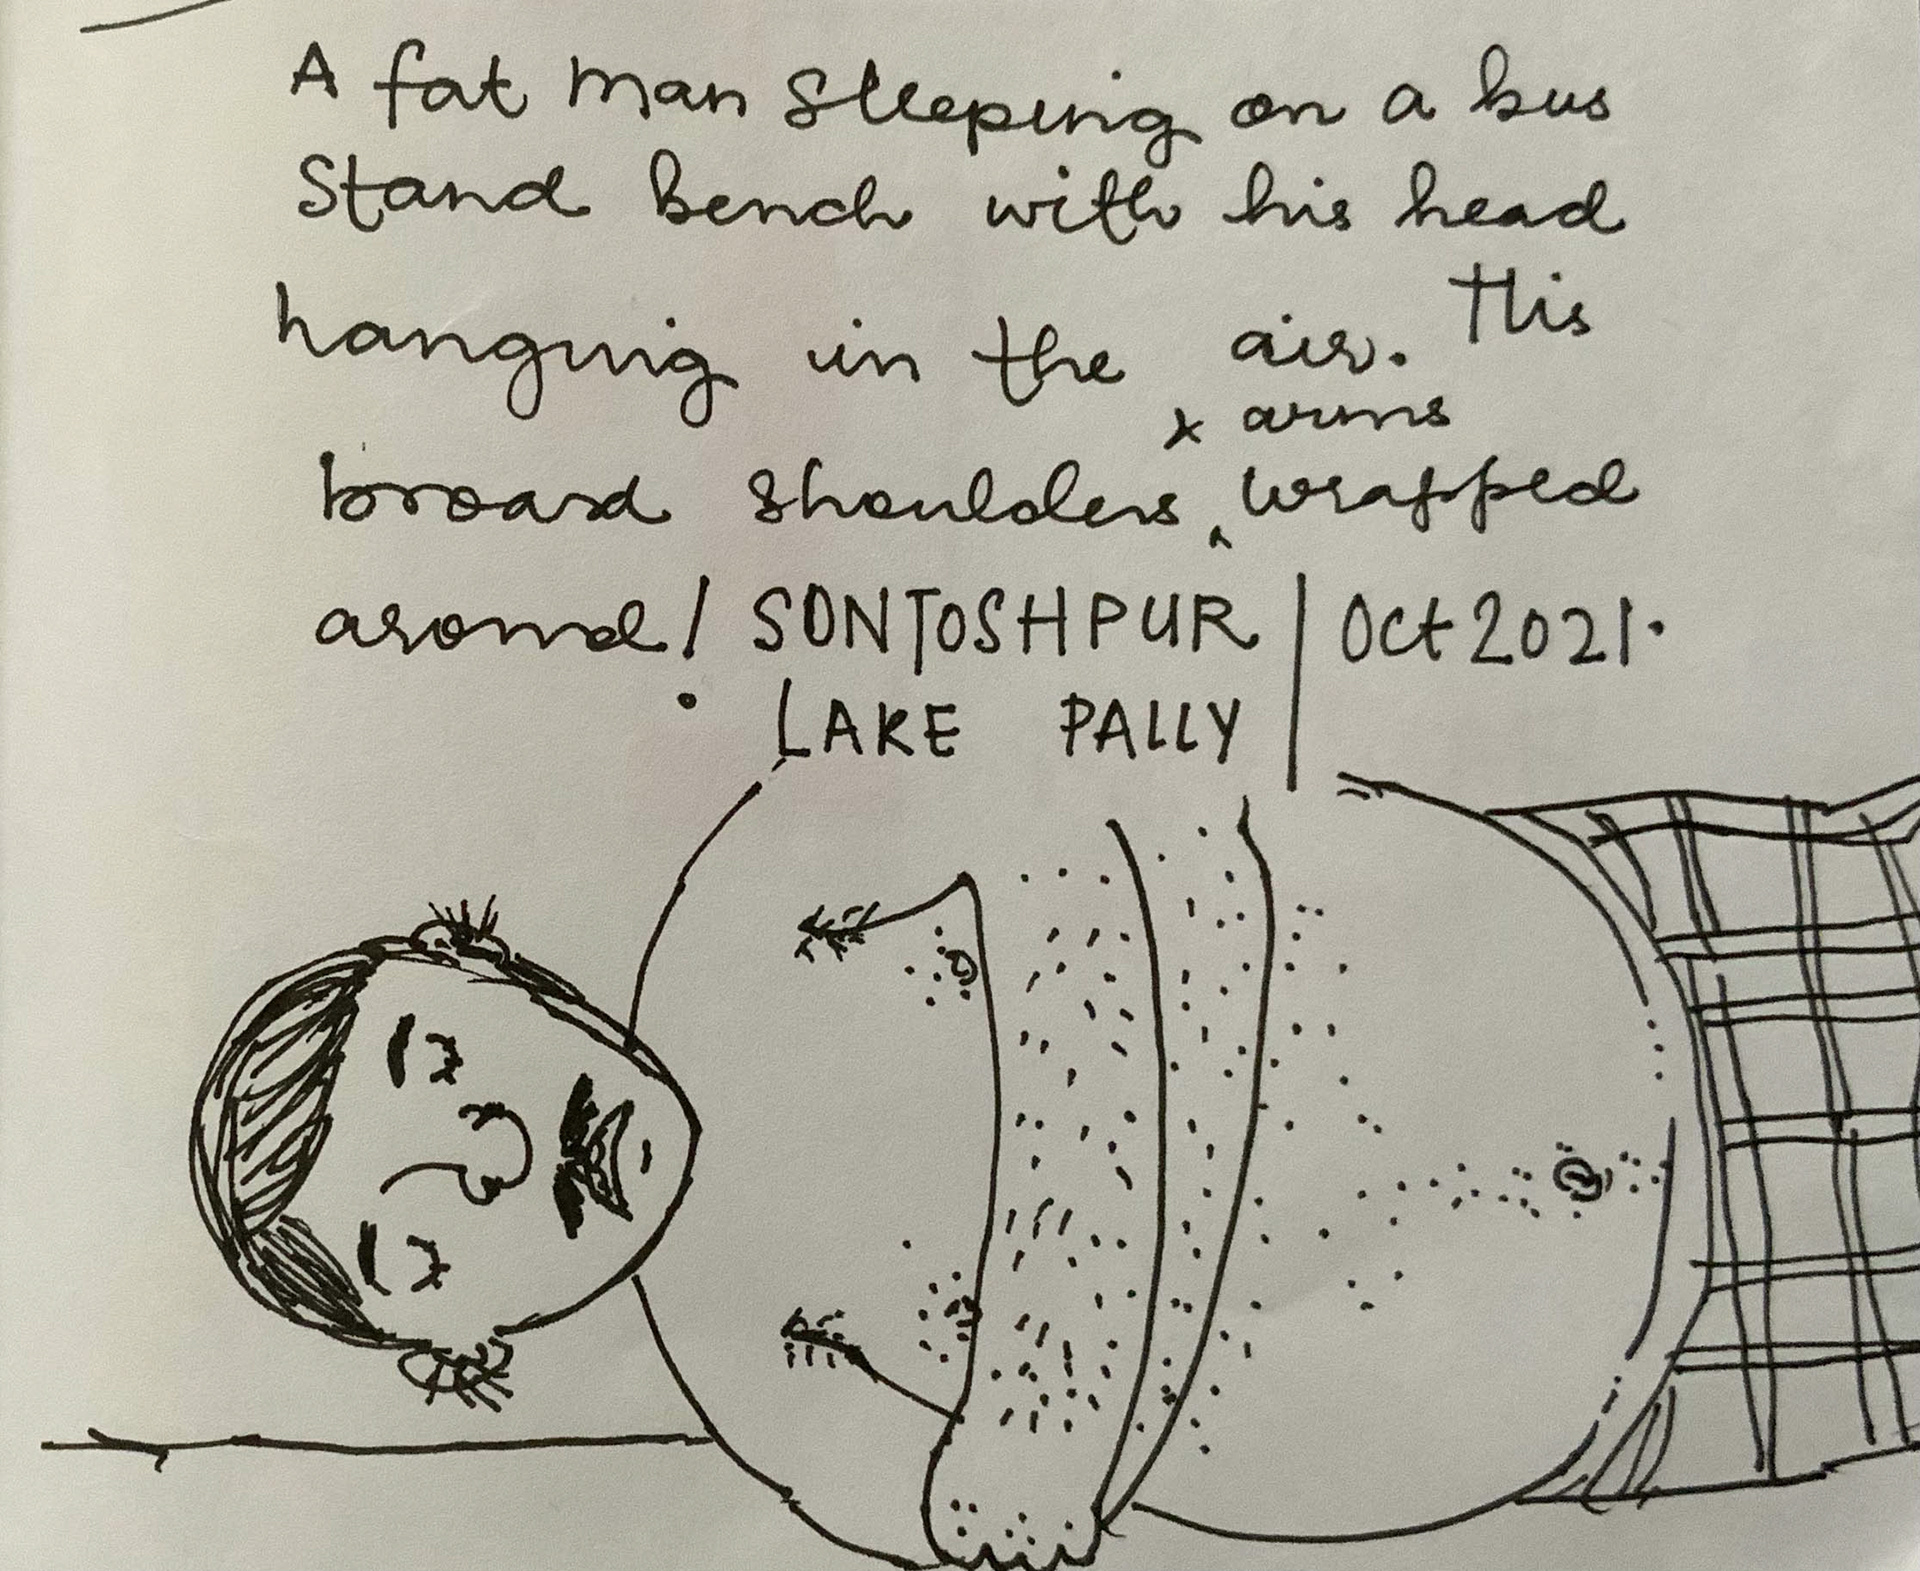 A fat man sleeping on a bus
stand bench with his head
hanging in the air. His
x arms
broad shoulders ^ wrapped
around! SONTOSHPUR | Oct 2021.
LAKE PALLY